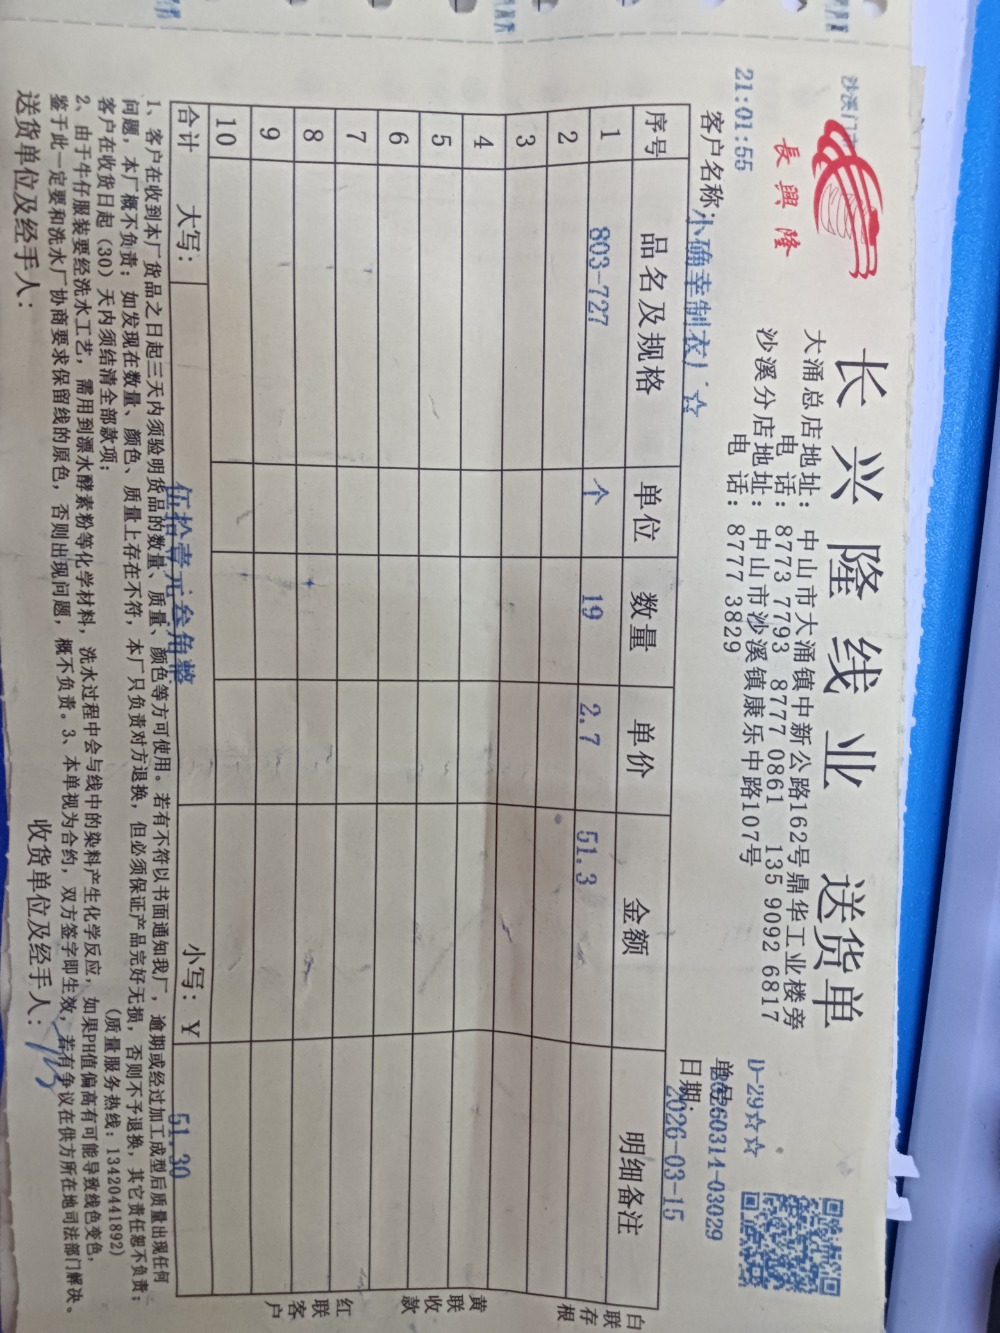 長興隆
长兴隆线业 送货单
大涌总店地址：中山市大涌镇中新公路162号鼎华工业楼旁
电 话：8773 7793 8777 0861 135 9092 6817
沙溪分店地址：中山市沙溪镇康乐中路107号
电 话：8777 3829
沙溪门
21:01:55
D-29☆☆
单号：20260314-03029
客户名称：小确幸制衣厂☆
日期：2026-03-15
序号 品名及规格 单位 数量 单价 金额 明细备注
1 803-727 个 19 2.7 51.3
2
3
4
5
6
7
8
9
10
合计 大写： 伍拾壹元叁角整 小写：¥ 51.30
白联存根
黄联收款
红联客户
1、客户在收到本厂货品之日起三天内须验明货品的数量、质量、颜色等方可使用。若有不符以书面通知我厂，逾期或经过加工成型后质量出现任何
问题，本厂概不负责；如发现在数量、颜色、质量上存在不符，本厂只负责对方退换，但必须保证产品完好无损，否则不予退换，其它责任恕不负责；
客户在收货日起（30）天内须结清全部款项； （质量服务热线：13420441892）
2、由于牛仔服装要经洗水工艺，需用到漂水酵素粉等化学材料，洗水过程中会与线中的染料产生化学反应，如果PH值偏高有可能导致线色变色，
鉴于此一定要和洗水厂协商要求保留线的原色，否则出现问题，概不负责。3、本单视为合约，双方签字即生效，若有争议在供方所在地司法部门解决。
送货单位及经手人： 收货单位及经手人：